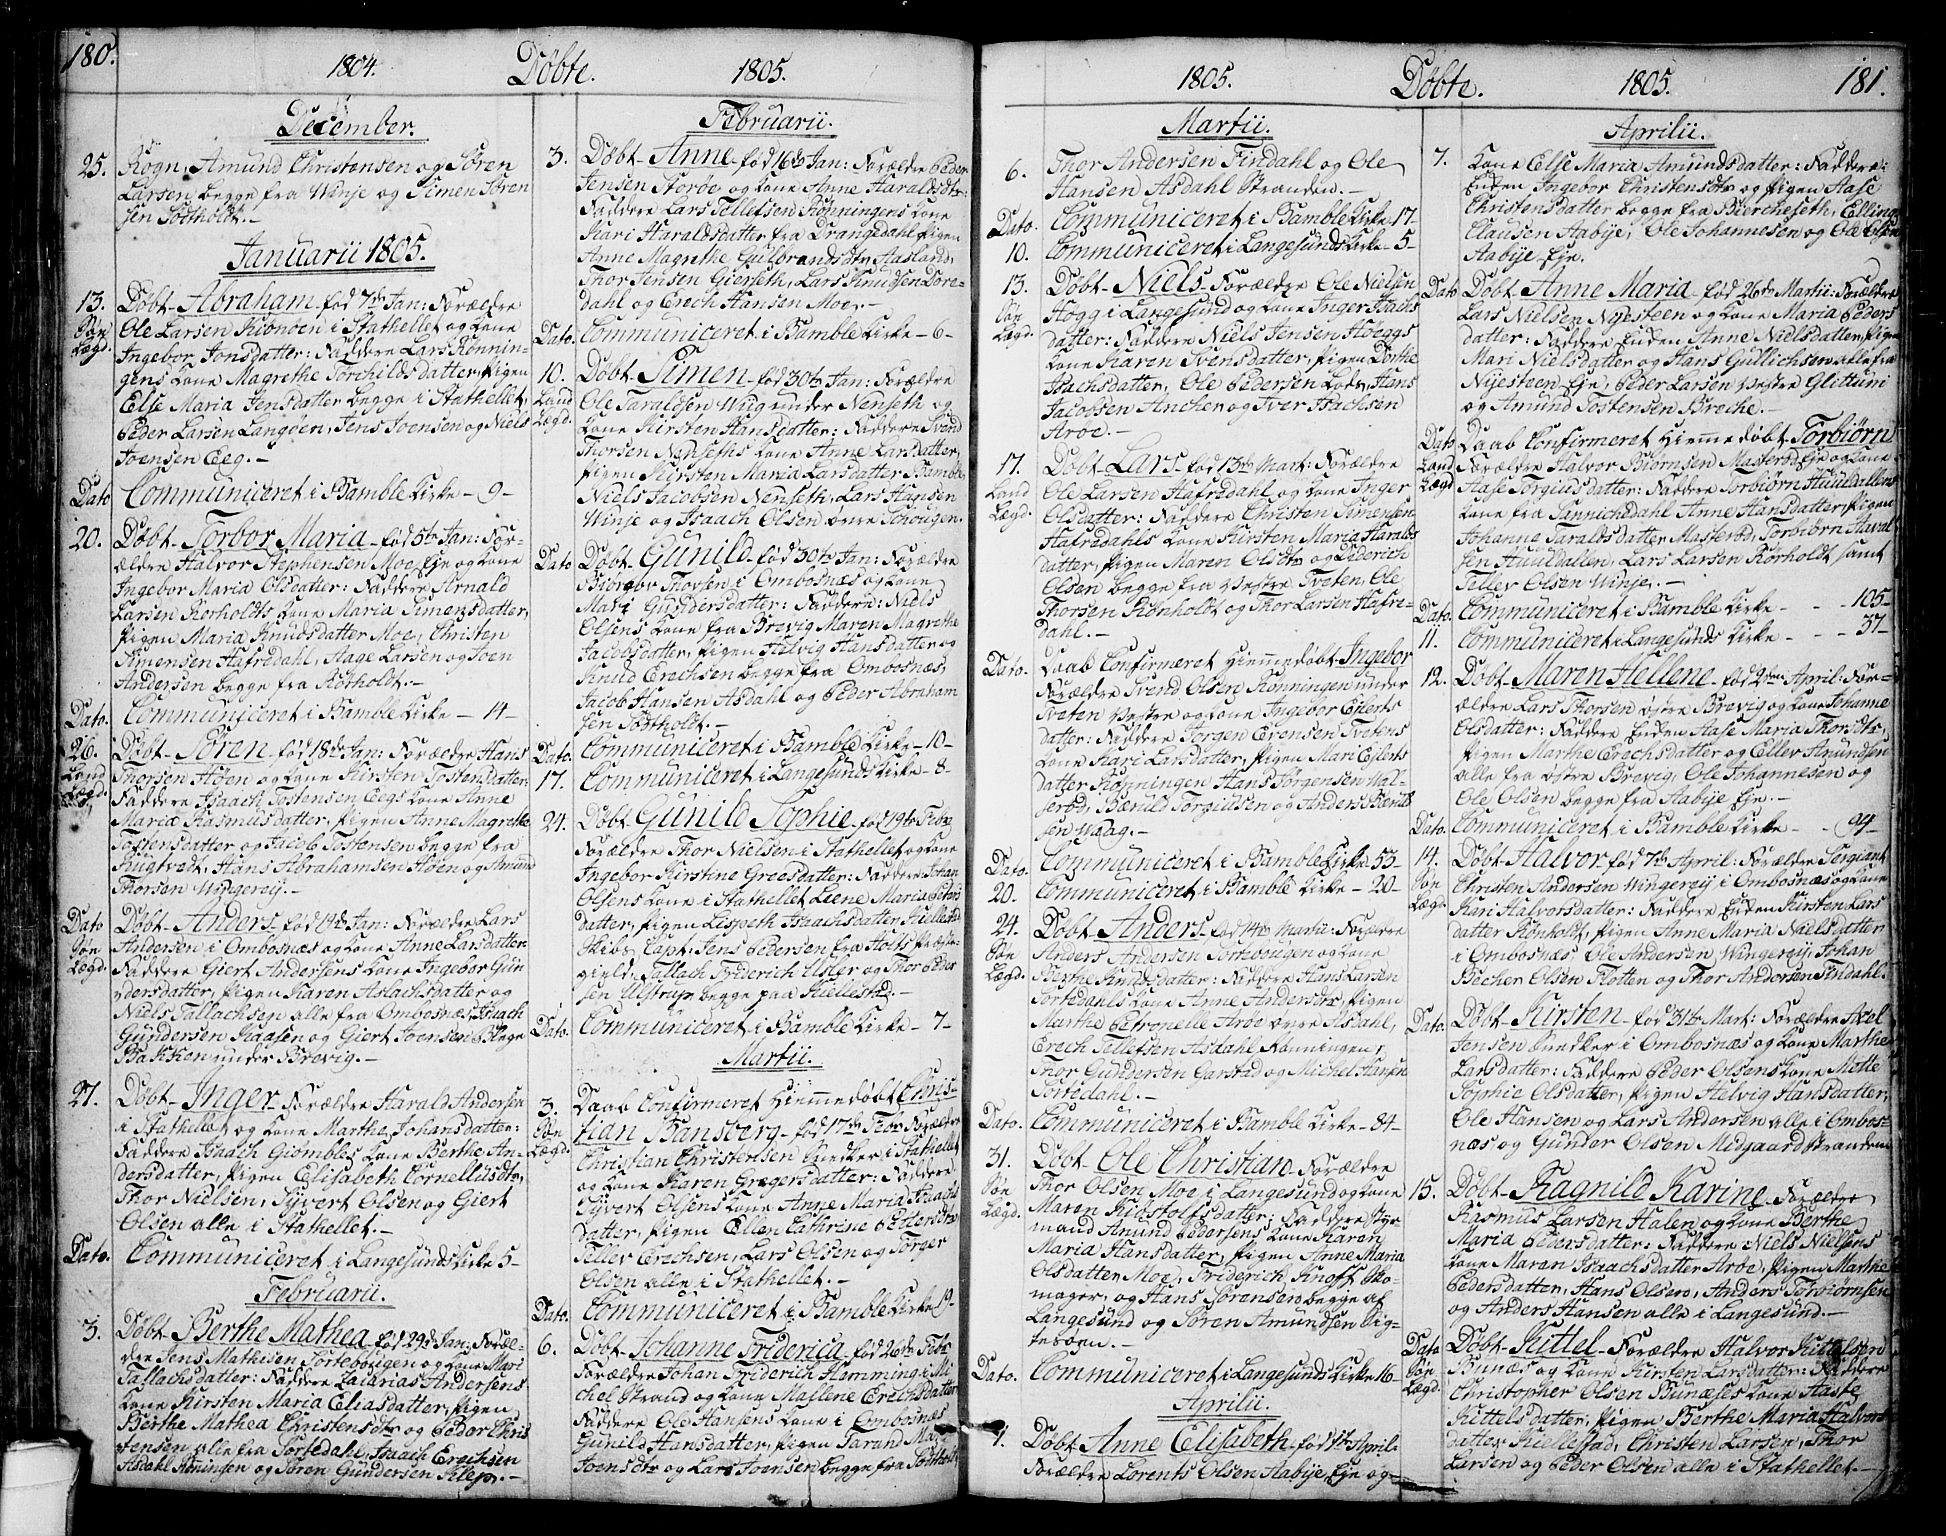 180.
1804.
Døbte.
1805.
December.
25. Rogn, Amund Christensen og Søren
Larsen begge fra Winje og Simen Sören
sen Todtholdt.-
Januarii 1805.
13. Døbt Abraham fød 7de Jan: Forældre
Søn Ole Larsen i Stathellet og Kone
Lægd. Ingebor Jonsdatter: Faddere Lars Rønnin-
gens Kone Magrethe Torchildsdatter, Pigen
Else Maria Jensdatter begge i Stathellet,
Peder Larsen Langøen, Jens Joensen og Niels
Joensen Eeg.-
Dato Communiceret i Bamble Kirke - 9 -
20. Døbt Torbor Maria fød 5te Jan: For-
ældre Halvor Stephensen Moe Eje og Kone
Ingebor Maria Olsdatter: Faddere Arnold
Larsen Rørholdts Kone Maria Simensdatter,
Pigen Maria Knudsdatter Moe, Christen
Simensen Hafredahl, Aage Larsen og Joen
Andersen begge fra Rörholdt.-
Dato. Communiceret i Bamble Kirke - 14 -
26. Døbt Søren fød 18de Jan: Forældre Hans
Land Thorsen Høen og Kone Kirsten Tostensdatter:
Lægd. Faddere Isaach Tostensen Eegs Kone Anne
Maria Rasmusdatter, Pigen Anne Magrethe
Tostensdatter og Jacob Tostensen begge fra
Hans Abrahamsen Høen og Amund
Thorsen Wingereij.-
Dato Døbt Anders fød 19de Jan: Forældre Lars
Søn Andersen i Ombosnæs og Kone Anne Larsdatter
Lægd. Faddere Giert Andersens Kone Ingebor Gun
dersdatter, Pigen Karen Aslachsdatter og
Niels Tallachsen alle fra Ombosnæs, Isaach
Gundersen Kaasen og Giert Joensen
Bakken under Brevig.-
27. Døbt Inger Forældre Harald Andersen
i Stathellet og Kone Marthe Johansdatter:
Faddere Isaach Giømbles Kone Berthe An-
dersdatter, Pigen Elisabeth Cornelliusdtr,
Thor Nielsen, Syvert Olsen og Giert
Olsen alle i Stathellet.-
Dato. Communiceret i Langesunds Kirke 5 -
Februarii.
3. Døbt Berthe Mathea fød 29de Jan: Foræl-
dre Jens Mathisen Tortebougen og Kone Mari
Tallachsdatter: Faddere Zacarias Andersens
Kone Kirsten Maria Eliasdatter, Pigen
Berthe Mathea Christensdtr og Peder Chris
tensen alle fra Tortedahl, Isaach Erechsen
Asdahl Rönningen og Søren Gundersen Klep.-
Februarii.
3. Døbt Anne fød 16de Jan: Forældre Peder
Jensen Storøe og Kone Anne Haraldsdtr:
Faddere Lars Tellefsen Rønningens Kone
Kari Haraldsdatter fra Drangedahl, Pigen
Anne Magrethe Gulbrandsdtr Aasland,
Thor Jensen Gierseth, Lars Knudsen Dore-
dahl og Erech Hansen Moe.-
Dato. Communiceret i Bamble Kirke - 6 -
10. Døbt Simen fød 30te Jan: Forældre
Land Ole Taraldsen Wiig under Nenseth og
Lægd. Kone Kirsten Hansdatter: Faddere Svend
Thorsen Nenseths Kone Anne Larsdatter,
Pigen Kirsten Maria Larsdatter Bamble
Niels Jacobsen Nenseth, Lars Hansen
Winje og Isaach Olsen øvre Schougen.
Dato Døbt Gunild fød 30te Jan: Forældre
Thorsen i Ombosnæs og Kone
Mari Gundersdatter: Faddere: Niels
Olsens Kone fra Brevig Maren Magrethe
Jacobsdatter, Pigen Helvig Hansdatter og
Knud Erechsen begge fra Ombosnæs,
Jacob Hansen Asdahl og Peder Abraham
sen Tortholdt.-
Dato. Communiceret i Bamble Kirke - 10 -
17. Communiceret i Langesunds Kirke - 8 -
24. Døbt Gunild Sophie fød 19de Febr
Forældre Thor Nielsen i Stathellet og Kone
Ingebor Kirstine Greesdatter: Faddere Johan
Olsens Kone i Stathellet Leene Maria Peders
datter, Pigen Lispeth Isaachsdatter Kiellestad
Skibs Capt: Jens Pedersen fra Holts Præste
gield, Tallach Friderich Usler og Thor Peder
sen Ulstrup begge paa Kiellestad.-
Dato. Communiceret i Bamble Kirke - 7 -
Martii.
3. Daab Confirmeret Hiemmedøbt Chris-
Søn tian Bansberg fød 17de Febr Forældre
Lægd. Christian Christensen Snedker i Stathellet
og Kone Karen Gregersdatter: Faddere
Syvert Olsens Kone Anne Maria Isaachs
datter, Pigen Ellen Cathrine Pedersdtr
Tellev Erechsen, Lars Olsen og Torger
Olsen alle i Stathellet.-
Dato. Communiceret i Bamble Kirke 19-
6. Døbt Johanne Friderica fød 26de Febr
Forældre Johan Friderich Hemming i Mi
chel Strand og Kone Mallene Erechsdatter
Faddere Ole Hansens Kone i Ombosnæs
Gunild Hansdatter, Pigen Tarand Ma
Joensdtr og Lars Joensen begge fra
1805.
Døbte.
1805.
181.
Martii.
6. Thor Andersen Findahl og Ole
Hansen Asdahl Stranden.-
Dato. Communiceret i Bamble Kirke - 17 -
10. Communiceret i Langesunds Kirke - 5 -
13. Døbt Niels Forældre Ole Nielsen
Søn Høgg i Langesund og Kone Inger Isachs
Lægd. datter: Faddere Niels Jensen Høeggs
Kone Karen Svensdatter, Pigen Dorthe
Isachsdatter, Ole Pedersen Lods, Hans
Jacobsen Anchen og Iver Isachsen
Aroe.-
17. Døbt Lars fød 13de Mart: Forældre
Land Ole Larsen Hafredahl og Kone Inger
Lægd. Olsdatter: Faddere Christen Simensen
Hafredahls Kone Kirsten Maria Haralds
datter, Pigen Maren Olsdtr og Diderich
Olsen begge fra Vestre Tveten, Ole
Thorsen Rönholdt og Thor Larsen Hafre-
dahl.-
Dato. Daab Confirmeret Hiemmedøbt Ingebor
Forældre Svend Olsen Rønningen under
Tveten Vestre og Kone Ingebor Eilerts
datter: Faddere Jørgen Evensen Tvetens
Kone Kari Larsdatter, Pigen Mari Eilerts
datter Rønningen Hans Jørgensen Val-
lerød, Bærulf Torgiusen og Anders Bents
sen Waag.-
Dato. Communiceret i Bamble Kirke - 53 -
20. Communiceret i Bamble Kirke - 20 -
24. Døbt Anders fød 14de Martii: Forældre
Søn Anders Andersen Tortebougen og Kone
Lægd. Berthe Amundsdatter: Faddere Hans Larsen
Tortedahls Kone Anne Andersdtr, Pigen
Marthe Petronelle Aroe øvre Asdahl,
Erech Tellefsen Asdahl Rønningen,
Thor Gundersen Garstad og Michel Hansen
Tortedahl.-
Dato. Communiceret i Bamble Kirke - 84 -
31. Døbt Ole Christian Forældre
Søn Thor Olsen Moe i Langesund og Kone
Lægd. Maren Kistolfsdatter: Faddere Styr
mand Amund Pedersens Kone Karen
Maria Hansdatter, Pigen Anne Maria
Olsdatter Moe, Friderich Knoff Sko-
mager, og Hans Sørensen begge af
Langesund og Søren Amundsen Rig-
teboen.-
Dato. Communiceret i Langesunds Kirke 16 -
Aprilii.
7. Døbt Anne Elisabeth fød 1st April
Forældre Lorents Olsen Aabije Eje og
Aprilii.
7. Kone Else Maria Amundsdatter: Faddere:
Enken Ingebor Christensdtr og Pigen Aase
Christensdatter begge fra Biercheseth, Elling
Clausen Aabije, Ole Johannesen og Ole Olsen
Aabije Eje.
Dato Døbt Anne Maria fød 26de Martii: Forældre
Lars Nielsen Nijesteen og Kone Maria Peders
datter: Faddere Enken Anne Nielsdatter, Pigen
Mari Nielsdatter og Hans Gullichsen alle fra
Nijesteen Eje, Peder Larsen Vestre Glittum
og Amund Tostensen Breche.-
Dato Daab Confirmeret Hiemmedøbt Torbiørn
Land Forældre Halvor Biørnsen Masterød Eje og Kone
Lægd Aase Torgiusdatter: Faddere Torbiørn Hauldallens
Kone fra Sannichedahl Anne Hansdatter, Pigen
Johanne Taraldsdatter Masterød, Torbiørn Haval
sen Hauldallen, Lars Larsen Rørholdt samt
Tellev Olsen Winje.-
Dato. Communiceret i Bamble Kirke - - - 105 -
11. Communiceret i Langesunds Kirke - - - 37 -
12. Døbt Maren Hellene fød 2den April: For-
ældre Lars Thorsen østre Brevig og Kone Johanne
Olsdatter: Faddere Enken Aase Maria Thorsdtr,
Pigen Marthe Erechsdatter og Ellev Amundsen
alle fra østre Brevig, Ole Johannesen og
Ole Olsen begge fra Aabije Eje.-
Dato. Communiceret i Bamble Kirke - - 94 -
14. Døbt Halvor fød 7de April: Forældre Sergiant
Søn Christen Andersen Wingereij i Ombosnæs og Kone
Lægd. Kari Halvorsdatter: Faddere Enken Kirsten Lars
datter Rönholdt, Pigen Anne Maria Nielsdatter
i Ombosnæs Ole Andersen Wingereij, Johan
Becher Olsen Flotten og Thor Andersen Findahl.
Dato. Døbt Kirsten fød 31te Mart: Forældre Axel
Jensen Snedker i Ombosnæs og Kone Marthe
Larsdatter: Faddere Peder Olsens Kone Mette
Sophie Olsdatter, Pigen Helvig Hansdatter,
Ole Hansen og Lars Andersen alle i Ombos-
næs og Gunder Olsen Midgaardstrandene
15. Døbt Ragnild Karine Forældre
Rasmus Larsen Halen og Kone Berthe
Maria Pedersdatter: Faddere Niels Nielsens
Kone Maren Isaachsdatter Aroe, Pigen Marthe
Pedersdatter, Hans Olsen, Anders Torbiørnsen
og Anders Hansen alle i Langesund.-
Dato Døbt Kittel Forældre Halvor Kittelsen
Søn Bunæs og Kone Kirsten Larsdatter: Faddere
Lægd. Christopher Olsen Bunæses Kone Aaste
Kittelsdatter, Pigen Berthe Maria Halvors
datter Kiellestad, Christen Larsen, Thor
Larsen og Peder Olsen alle i Stathellet.-